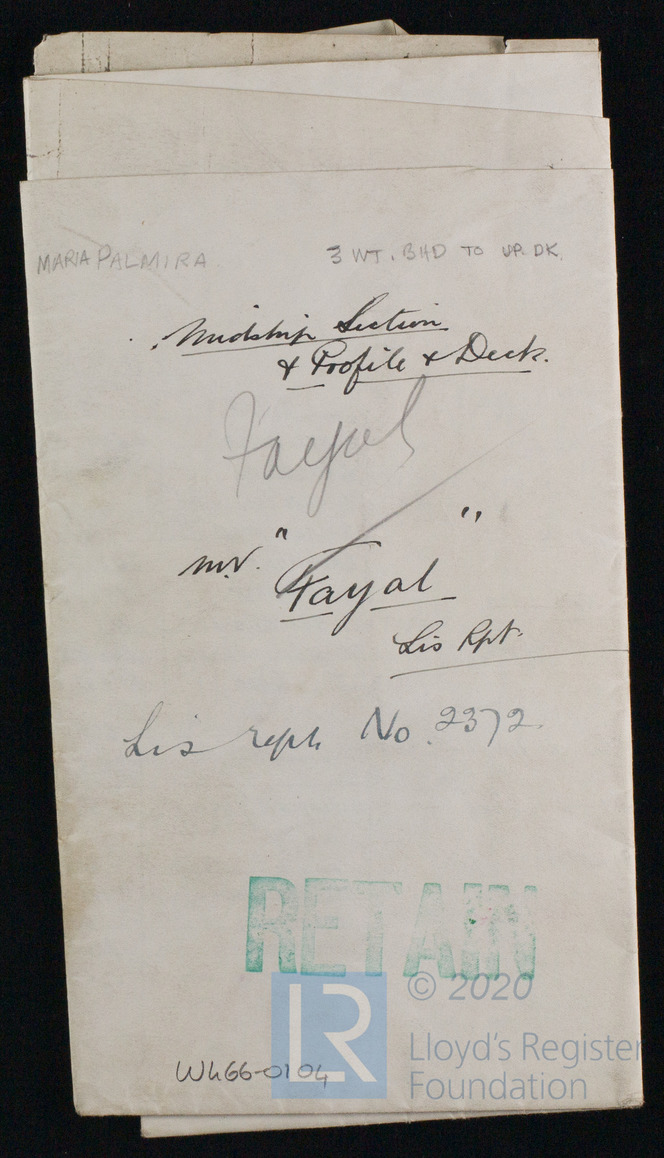 MARIA PALMIRA
3 WT. BHD TO UP. DK.
Midship Section
& Profile & Deck.
Fayal
M.V. "Fayal"
Lis Rpt.
Lis rept No. 2372.
RETAIN
© 2020
LR
Lloyd's Register
Foundation
W466-0104